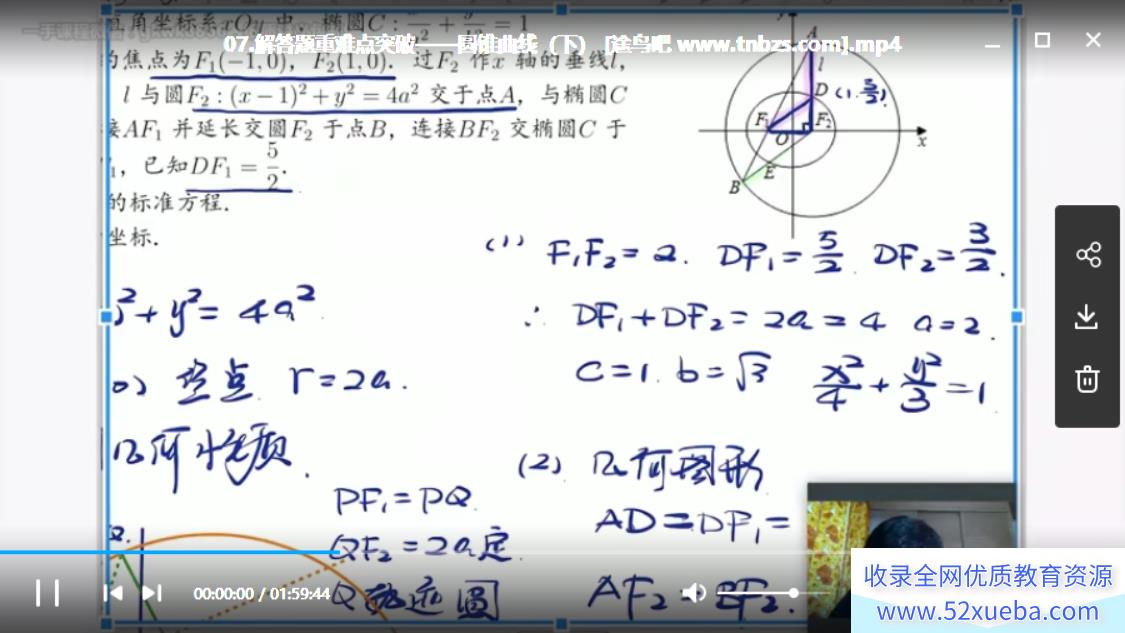 直角坐标系xOy 中，椭圆C：
07.解答题重难点突破——圆锥曲线（下） [途鸟吧 www.tnbzs.com].mp4
的焦点为F₁(−1,0)，F₂(1,0). 过F₂ 作x 轴的垂线l，
l 与圆F₂：(x−1)²+y²=4a² 交于点A，与椭圆C
接AF₁ 并延长交圆F₂ 于点B，连接BF₂ 交椭圆C 于
已知DF₁=5/2.
的标准方程.
坐标.
A
l
D (1, 3/2)
F₁
F₂
O
x
E
B
(1) F₁F₂=2. DF₁=5/2. DF₂=3/2.
∴ DF₁+DF₂=2a=4 a=2.
c=1. b=√3 x²/4+y²/3=1
+y²=4a²
r=2a.
几何性质.
PF₁=PQ
QF₂=2a定
(2) 几何图形
AD=DF₁=
00:00:00 / 01:59:44
收录全网优质教育资源
www.52xueba.com